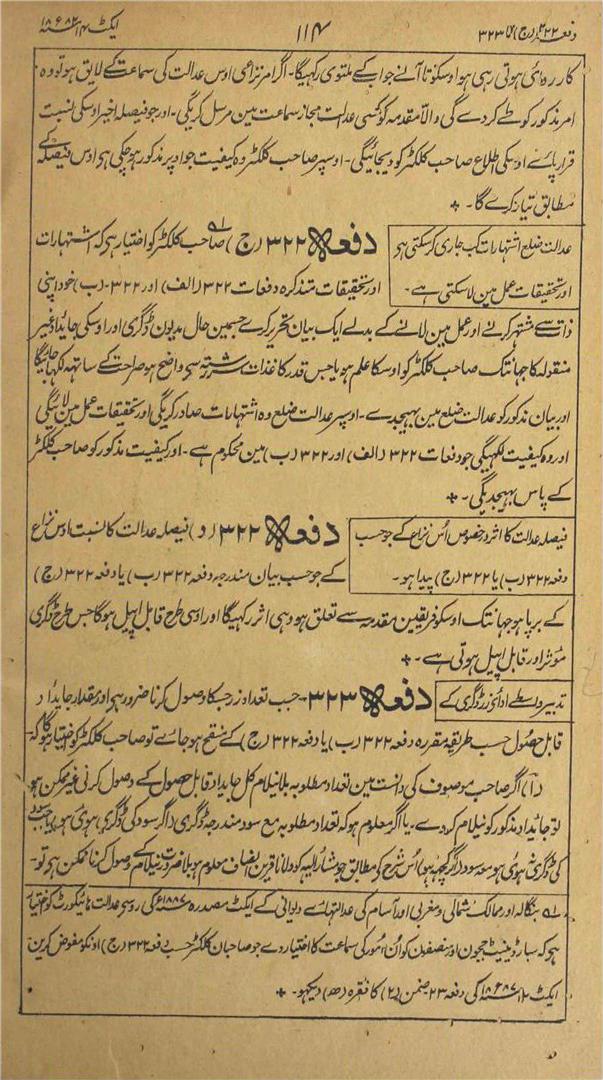 دفعہ ۳۲۲ (ج) تا ۳۲۳
۱۱۴
ایکٹ ۱۴ سنہ ۱۸۸۲ء
کارروائی ہوتی رہی ہو اوسکو تا آنے جواب کے ملتوی رکہیگا ۔ اگر امر نزاعی اوس عدالت کی سماعت کے لایق ہو تو وہ
امر مذکور کو طے کردے گی والّا مقدمہ کو کسی عدالت مجاز سماعت مین مرسل کریگی ۔ اور جو فیصلہ اخیر اوسکی نسبت
قرار پائے اوسکی اطلاع صاحب کلکٹر کو دیجائیگی ۔ اوسپر صاحب کلکٹر وہ کیفیت جو اوپر مذکور ہو چکی ہی اوس فیصلہ کے
مطابق تیار کرے گا ۔
عدالت ضلع اشتہارات کب جاری کر سکتی ہی
اور تحقیقات عمل مین لا سکتی ہے ۔
دفعہ ۳۲۲ (ج) صاحب کلکٹر کو اختیار ہی کہ اشتہارات
اور تحقیقات متذکرہ دفعات ۳۲۲ (الف) اور ۳۲۲ ۔ (ب) خود اپنی
ذات سے مشتہر کرنے اور عمل مین لانے کے بدلے ایک بیان تحریر کرے جسمین حال مدیون ڈگری اور اوسکی جائداد غیر
منقولہ کا جہانتک صاحب کلکٹر کو اوسکا علم ہو یا جس قدر کاغذات سررشتہ سی واضح ہو صراحت کے ساتہہ لکہا جائیگا
اور بیان مذکور کو عدالت ضلع مین بہیجدے ۔ اوسپر عدالت ضلع وہ اشتہارات صادر کریگی اور تحقیقات عمل مین لائیگی
اور وہ کیفیت لکہیگی جو دفعات ۳۲۲ (الف) اور ۳۲۲ (ب) مین محکوم ہے ۔ اور کیفیت مذکور کو صاحب کلکٹر
کے پاس بہیجدیگی ۔
فیصلہ عدالت کا اثر در خصوص اُس نزاع کے جو حسب
دفعہ ۳۲۲ (ب) یا ۳۲۲ (ج) پیدا ہو ۔
دفعہ ۳۲۲ (د) فیصلہ عدالت کا نسبت اوس نزاع
کے جو حسب بیان مندرجہ دفعہ ۳۲۲ (ب) یا دفعہ ۳۲۲ (ج)
کے برپا ہو جہانتک اوسکو فریقین مقدمہ سے تعلق ہو وہی اثر رکہیگا اور اوسی طرح قابل اپیل ہوگا جس طرح ڈگری
مؤثر اور قابل اپیل ہوتی ہے ۔
تدبیر واسطے ادای زر ڈگری کے
دفعہ ۳۲۳ ۔ جب تعداد زر جسکا وصول کرنا ضرور ہی اور مقدار جایداد
قابل حصول حسب طریقہ مقررہ دفعہ ۳۲۲ (ب) یا دفعہ ۳۲۲ (ج) کے منقح ہو جائے تو صاحب کلکٹر کو اختیار ہوگا کہ
(۱) اگر صاحب موصوف کی دانست مین تعداد مطلوبہ بلا نیلام کل جایداد قابل حصول کے وصول کرنی غیر ممکن ہو
تو جائداد مذکور کو نیلام کردے ۔ یا اگر معلوم ہو کہ تعداد مطلوبہ مع سود مندرجہ ڈگری (اگر سود کی ڈگری ہوئی ہو) یا جب سود
کی ڈگری نہ ہوئی ہو مع سود (اگر کچہہ ہو) اُس شرح کے مطابق جو مشار الیہ کو دلانا قرین انصاف معلوم ہو بلا ضرورت نیلام کے وصول کرنا ممکن ہی تو ۔
لہ بنگالہ اور ممالک شمالی و مغربی اور آسام کی عدالتہائے دیوانی کے ایکٹ مصدرہ سنہ ۱۸۸۷ء کی روسی عدالت ہائیکورٹ کو اختیار
ہی کہ سبارڈینیٹ ججون اور منصفون کو اُن اُمور کی سماعت کا اختیار دے جو صاحبان کلکٹر حسب دفعہ ۳۲۲ (ج) اونکو مفوض کرین
ایکٹ ۱۲ سنہ ۱۸۸۷ء کی دفعہ ۲۳ ضمن (۲) کا فقرہ (ھ) دیکہو ۔